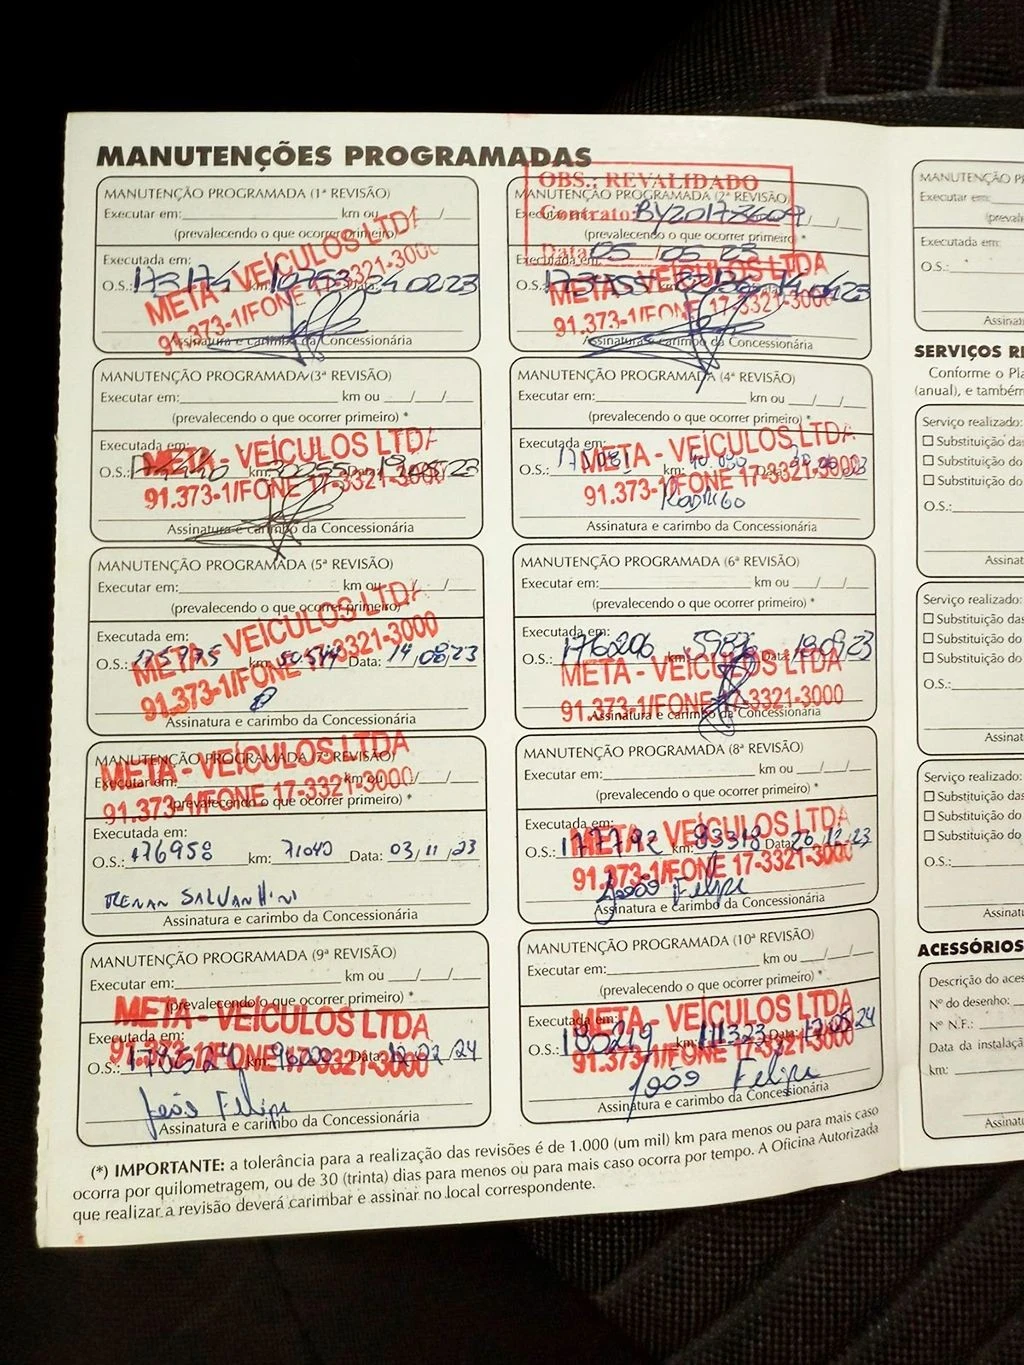 MANUTENÇÕES PROGRAMADAS
MANUTENÇÃO PROGRAMADA (1ª REVISÃO)
Executar em: km ou / /
(prevalecendo o que ocorrer primeiro) *
Executada em:
O.S.: km: 10753 Data: 24 02 23
META - VEÍCULOS LTDA
91.373-1/FONE 17-3321-3000
Assinatura e carimbo da Concessionária
OBS.: REVALIDADO
Contrato:
Data: 05 / 05 / 23
MANUTENÇÃO PROGRAMADA (2ª REVISÃO)
Executar em: / /
(prevalecendo o que ocorrer primeiro) *
Executada em:
O.S.: 23
META - VEÍCULOS LTDA
91.373-1/FONE 17-3321-3000
Assinatura e carimbo da Concessionária
MANUTENÇÃO PROGRAMADA (3ª REVISÃO)
Executar em: km ou / /
(prevalecendo o que ocorrer primeiro) *
Executada em:
O.S.: km: 30055 Data: 19 05 23
META - VEÍCULOS LTDA
91.373-1/FONE 17-3321-3000
Assinatura e carimbo da Concessionária
MANUTENÇÃO PROGRAMADA (4ª REVISÃO)
Executar em: km ou / /
(prevalecendo o que ocorrer primeiro) *
Executada em:
O.S.: km: Data:
META - VEÍCULOS LTDA
91.373-1/FONE 17-3321-3000
RODRIGO
Assinatura e carimbo da Concessionária
MANUTENÇÃO PROGRAMADA (5ª REVISÃO)
Executar em: km ou / /
(prevalecendo o que ocorrer primeiro)
Executada em:
O.S.: km: 50.544 Data: 14 / 08 / 23
META - VEÍCULOS LTDA
91.373-1/FONE 17-3321-3000
Assinatura e carimbo da Concessionária
MANUTENÇÃO PROGRAMADA (6ª REVISÃO)
Executar em: km ou / /
(prevalecendo o que ocorrer primeiro) *
Executada em:
O.S.: 176206 km: Data: 23
META - VEÍCULOS LTDA
91.373-1/FONE 17-3321-3000
Assinatura e carimbo da Concessionária
MANUTENÇÃO PROGRAMADA (7ª REVISÃO)
META - VEÍCULOS LTDA
Executar em: km ou / /
91.373-1/FONE 17-3321-3000
(prevalecendo o que ocorrer primeiro) *
Executada em:
O.S.: 176958 km: 71040 Data: 03 / 11 / 23
RENAN SALVANHINI
Assinatura e carimbo da Concessionária
MANUTENÇÃO PROGRAMADA (8ª REVISÃO)
Executar em: km ou / /
(prevalecendo o que ocorrer primeiro) *
Executada em:
O.S.: 177792 km: 83318 Data: 26 / 12 / 23
META - VEÍCULOS LTDA
91.373-1/FONE 17-3321-3000
João Felipe
Assinatura e carimbo da Concessionária
MANUTENÇÃO PROGRAMADA (9ª REVISÃO)
Executar em: km ou / /
(prevalecendo o que ocorrer primeiro) *
META - VEÍCULOS LTDA
Executada em:
O.S.: km: 96000 Data: 02 / 24
91.373-1/FONE 17-3321-3000
João Felipe
Assinatura e carimbo da Concessionária
MANUTENÇÃO PROGRAMADA (10ª REVISÃO)
Executar em: km ou / /
(prevalecendo o que ocorrer primeiro) *
META - VEÍCULOS LTDA
Executada em:
O.S.: 185219 km: 111323 Data: 17 05 24
91.373-1/FONE 17-3321-3000
João Felipe
Assinatura e carimbo da Concessionária
(*) IMPORTANTE: a tolerância para a realização das revisões é de 1.000 (um mil) km para menos ou para mais caso
ocorra por quilometragem, ou de 30 (trinta) dias para menos ou para mais caso ocorra por tempo. A Oficina Autorizada
que realizar a revisão deverá carimbar e assinar no local correspondente.
MANUTENÇÃO
Executar em:
Executada em:
O.S.:
SERVIÇOS
Conforme o
(anual), e também
Serviço realizado:
☐ Substituição das
☐ Substituição do
☐ Substituição do
O.S.:
Serviço realizado:
☐ Substituição das
☐ Substituição do
☐ Substituição do
O.S.:
Serviço realizado:
☐ Substituição das
☐ Substituição do
☐ Substituição do
O.S.:
ACESSÓRIOS
Descrição do
Nº do desenho:
Nº N.F.:
Data da
km: